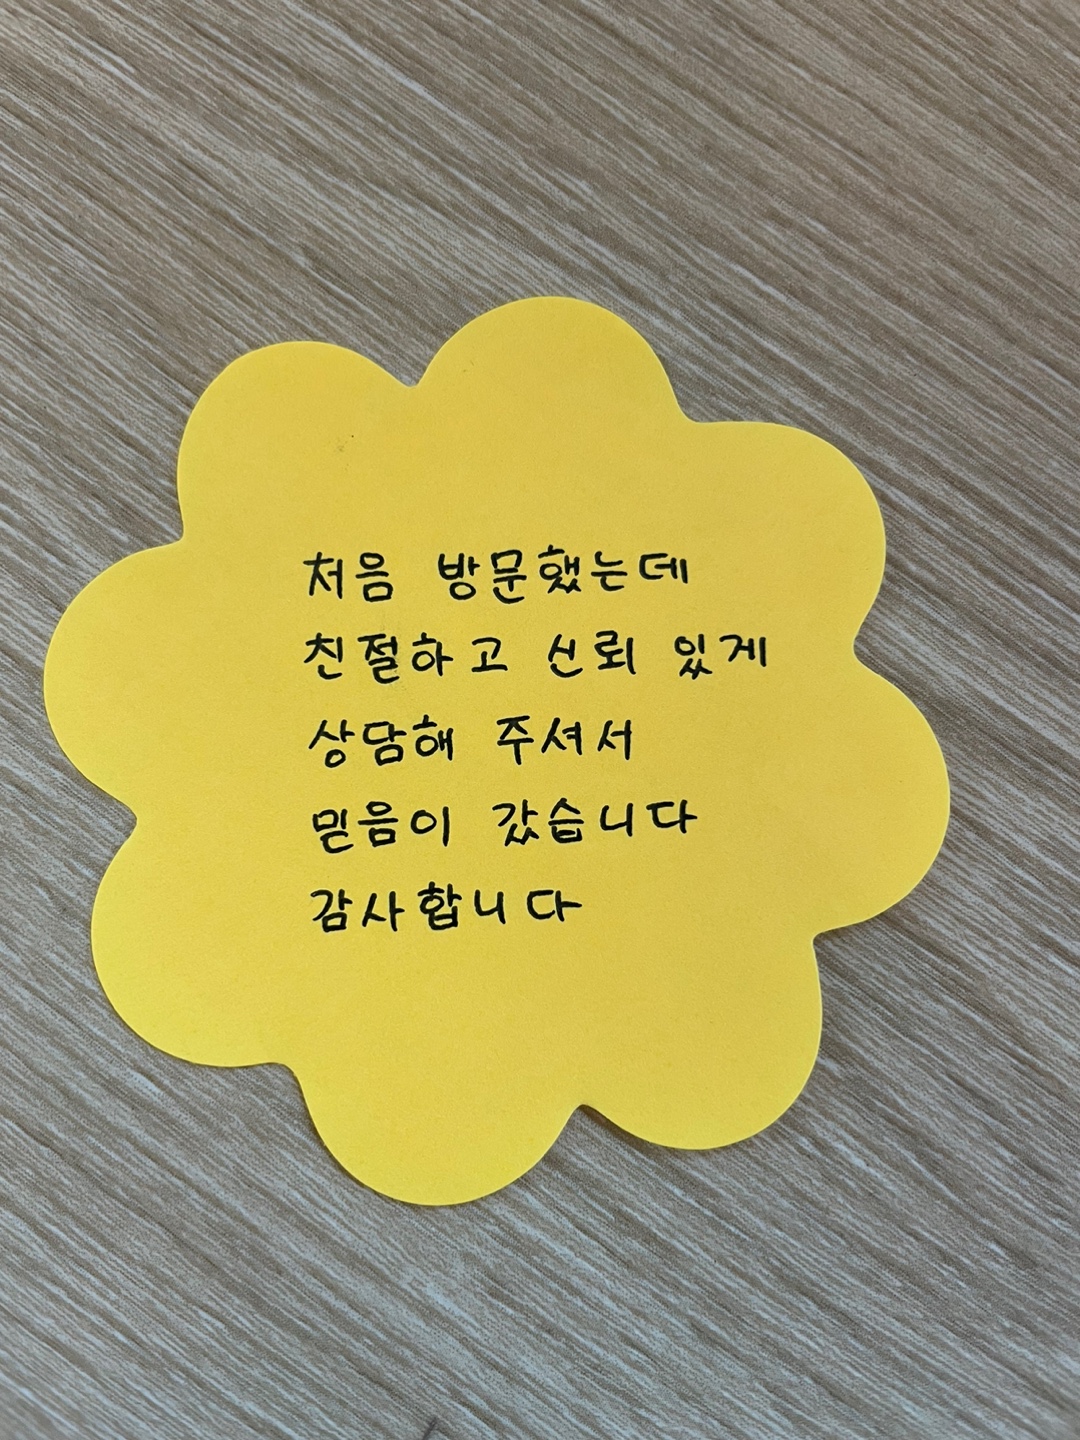 처음 방문했는데
친절하고 신뢰 있게
상담해 주셔서
믿음이 갔습니다
감사합니다